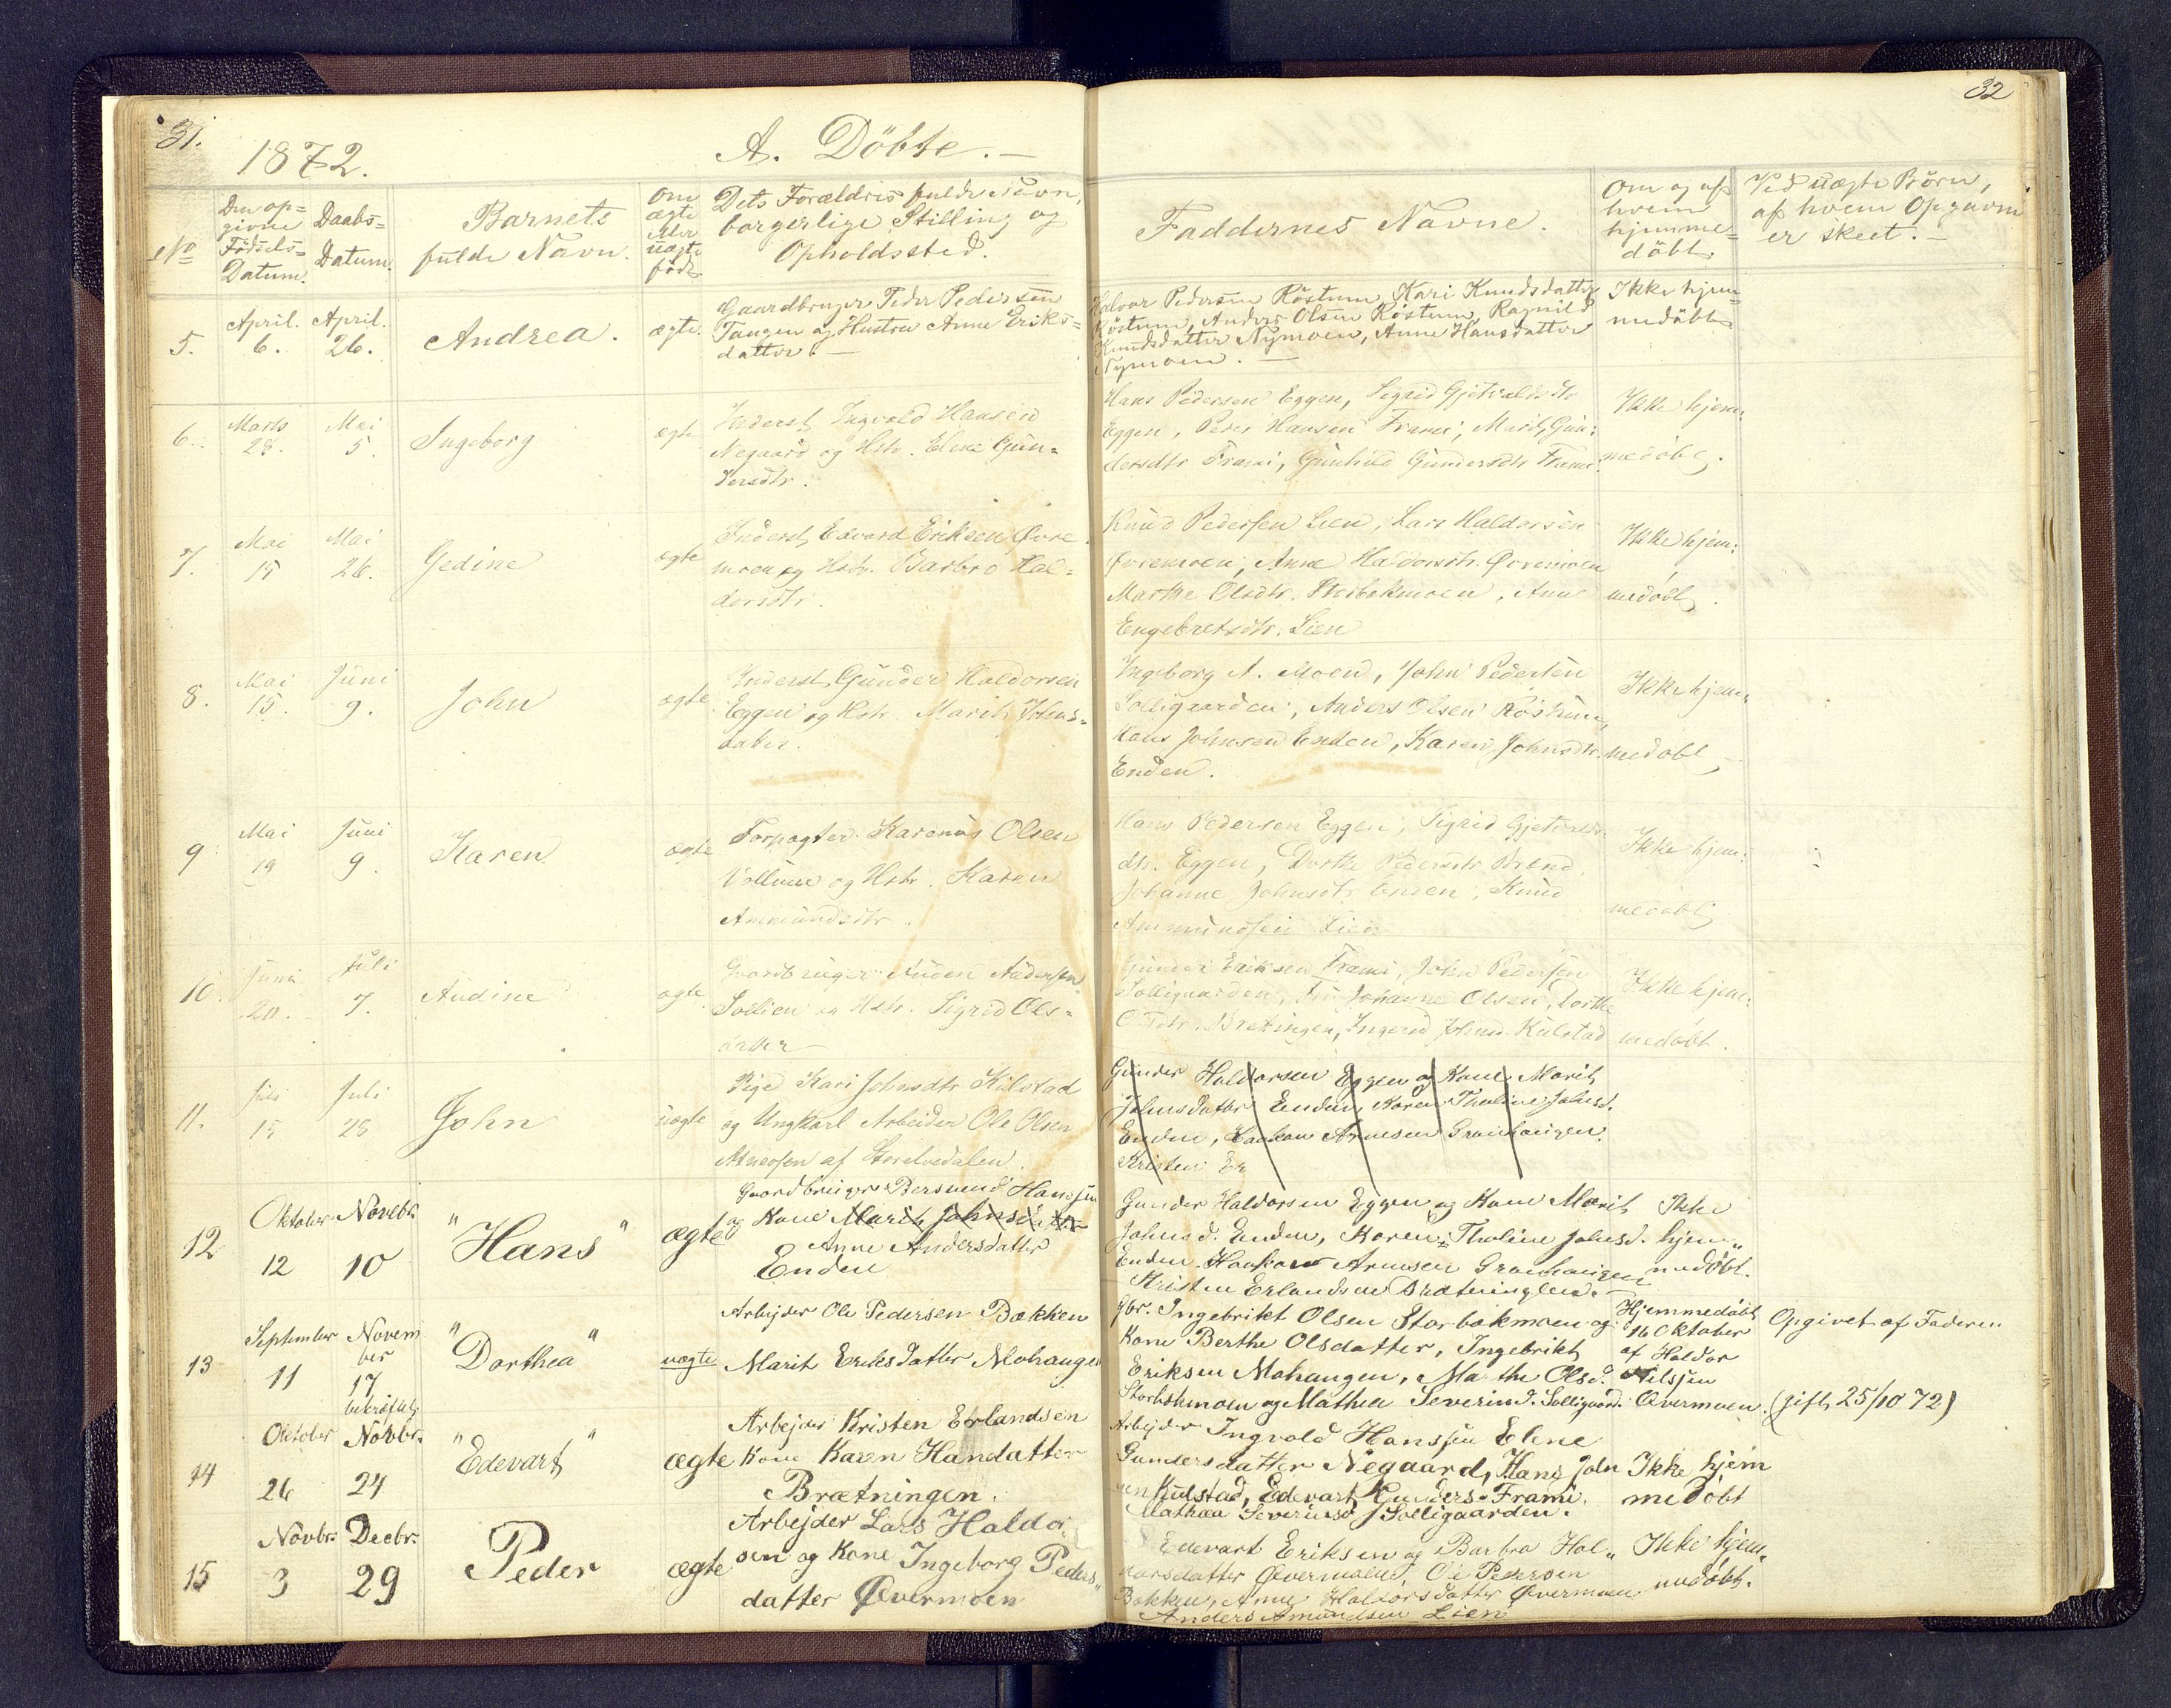 31.
1872.
A. Döbte.
32
No
Den op=
givne
Födsels=
Datum.
Daabs=
Datum.
Barnets
fulde Navn.
Om
ægte
eller
uægte
född.
Dets Forældres fulde Navn,
borgerlige Stilling og
Opholdssted.
Faddernes Navne.
Om og af
hvem
hjemme=
döbt.
Ved uægte Börn,
af hvem Opgaven
er skeet.
5.
April.
6.
April.
26.
Andrea.
ægte.
Gaardbruger Peder Pedersen
Tangen og Hustru Anne Eriks=
datter.
Halvor Pedersen Röstum, Kari Knudsdatter
Röstum, Anders Olsen Röstum, Ragnild
Knudsdatter Nymoen, Anne Hansdatter
Nymoen.
Ikke hjem=
medöbt
6.
Marts
28.
Mai
5.
Ingeborg
ægte
Inderst Ingvald Hansen
Negaard og Hstr. Elene Gun=
dersdtr.
Hans Pedersen Eggen, Sigrid Gjetvaldsdtr
Eggen, Peder Hansen Frami, Marit Gun=
dersdtr Frami, Gunhild Gundersdtr Frami
Ikke hjem=
medöbt.
7.
Mai
15
Mai
26.
Gedine
ægte
Inderst Edvard Eriksen Övre
moen og Hstr. Barbro Hal=
dorsdtr.
Knud Pedersen Lien, Lars Haldorsen
Övremoen, Anne Haldorsdtr. Övremoen
Marthe Olsdtr. Storbekmoen, Anne
Engebretsdtr. Lien
Ikke hjem=
medöbt.
8.
Mai
15.
Juni
9.
John
ægte
Inderst Gunder Haldorsen
Eggen og Hstr. Marit Johns=
datter.
Ingeborg A. Moen, John Pedersen
Solligaarden, Anders Olsen Röstum,
Hans Johnsen Enden, Karen Johnsdtr.
Enden.
Ikke hjem=
medöbt
9
Mai
19
Juni
9.
Karen
ægte
Forpagter Karenus Olsen
Vollum og Hstr. Karen
Ammundsdtr.
Hans Pedersen Eggen, Sigrid Gjetvalds
dtr. Eggen, Dorthe Pedersdtr
Johanne Johnsdtr Enden, Knud
Ammundsen Lien
Ikke hjem=
medöbt
10.
Juni
20.
Juli
7.
Audine
ægte
Gaardbruger Auden Audensen
Sollien og Hstr. Sigrid Ols=
datter
Gunder Eriksen Frami, John Pedersen
Solligaarden, Fru Johanne Olsen, Dorthe
Olsdtr. Bretingen, Ingerid Johnsd. Kulstad
Ikke hjem=
medöbt.
11.
Juli
15
Juli
28
John
uægte
Pige Kari Johnsdtr Kulstad
og Ungkarl Arbeider Ole Olsen
af Storelvedalen.
Gunder Haldorsen Eggen og Kone Marit
Johnsdatter Enden, Karen Thaline Johnsd.
Enden, Haakon Arnesen Granhaugen.
Kristen Er
12
Oktober
12
Novebr.
10
"Hans"
ægte
Gaardbruger Bersvend Hansen
og Kone Marit Johnsdatter
Anne Andersdatter
Enden
Gunder Haldorsen Eggen og Kone Marit
Johnsd. Enden, Karen Thaline Johnsd.
Enden. Haakon Arnesen Granhaugen
Kristen Erlandsen Brætninglen.
Ikke
hjem=
medöbt.
13
September
11
Novem
ber
17
bekræftet
"Dorthea"
uægte
Arbejder Ole Pedersen Bakken
Marit Eriksdatter Mohaugen
Gbr. Ingebrikt Olsen Storbakmoen og
Kone Berthe Olsdatter, Ingebrikt
Eriksen Mohaugen, Marthe Olsd.
Storbakmoen og Mathea Severind. Solligaard.
Hjemmedöbt
16 Oktober
af Haldor
Nilssen
Övermoen.
Opgivet af Faderen
(gift 25/10 72)
14
Oktober
26
Novbr.
24
"Edevart"
ægte
Arbejder Kristen Erlandsen
Kone Karen Handatter
Brætningen.
Arbejder Ingvald Hanssen Elene
Gundersdatter Negaard, Hans John
sen Kulstad, Edevart Gunders. Frami.
Mathea Severinsd Solligaarden.
Ikke hjem
medöbt
15
Novbr.
3
Decbr.
29
Peder
ægte
Arbejder Lars Haldor
sen og Kone Ingeborg Peders"
datter Övermoen
Edevart Eriksen og Barbra Hal"
dorsdatter Övermoen, Ole Pedersen
Bakken, Anne Haldorsdatter Övermoen
Anders Amundsen Lien
Ikke hjem"
medöbt.